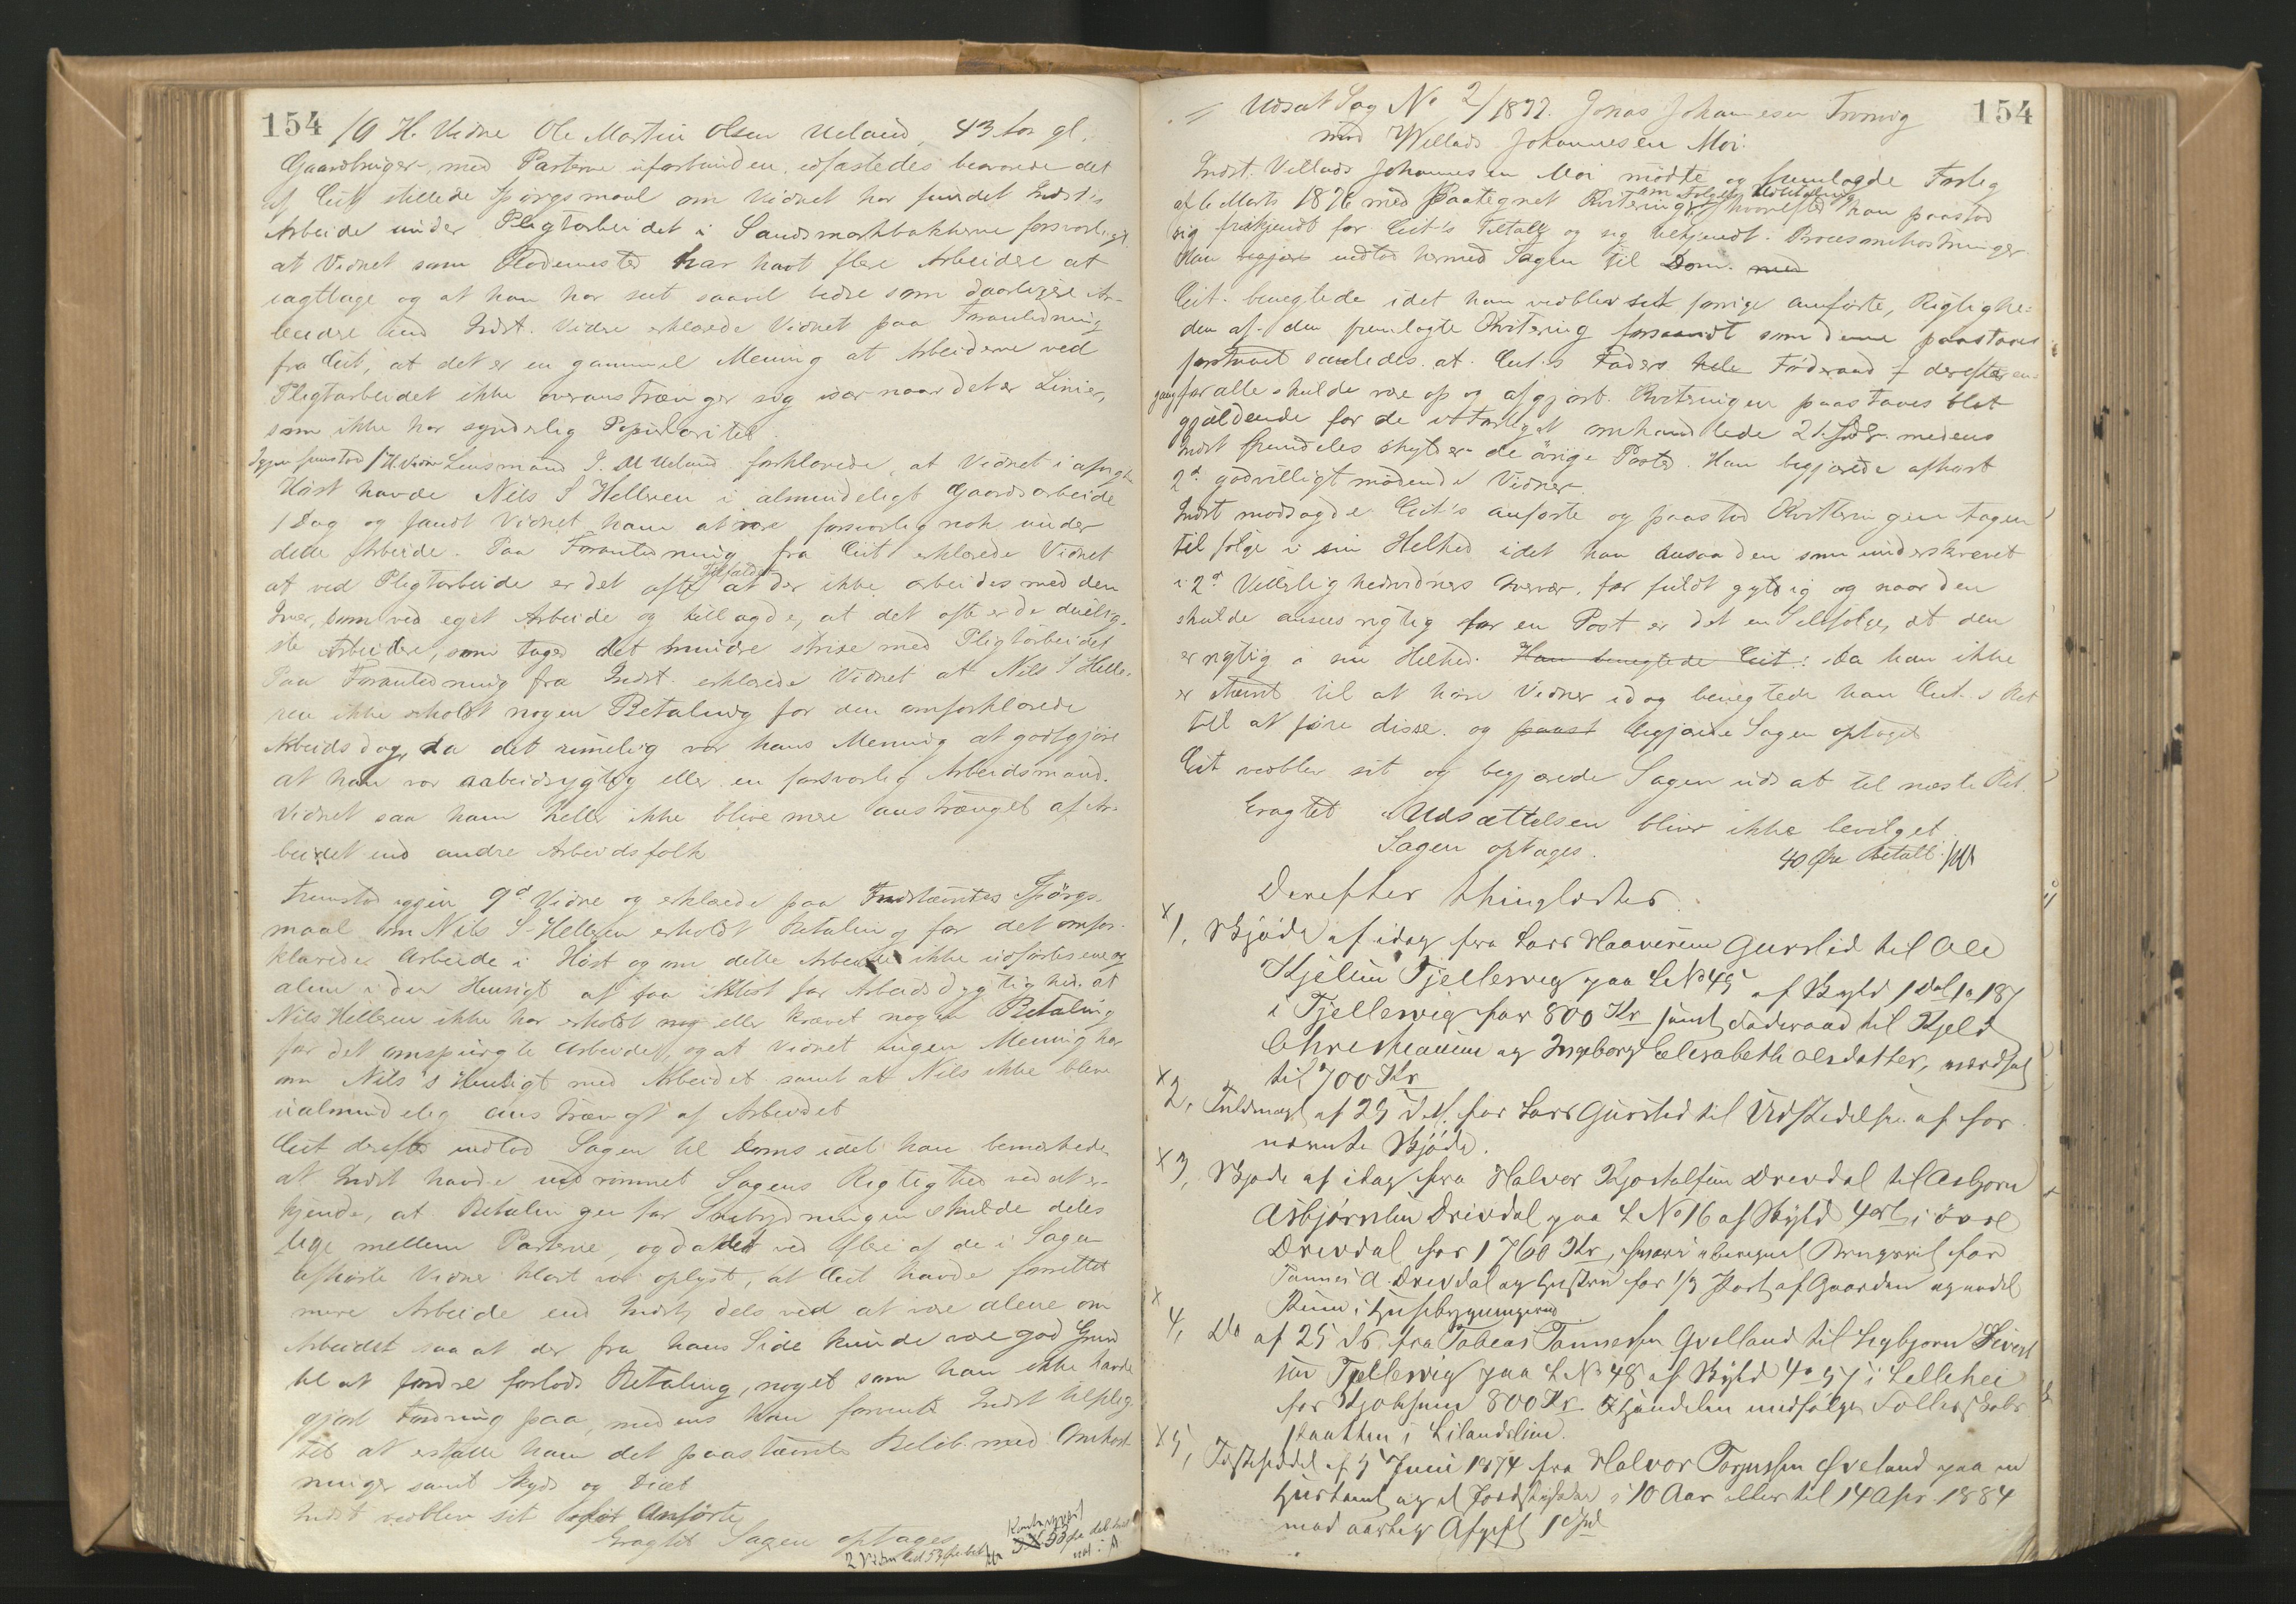 154
/9 H. Vidne Ole Martin Olsen Ueland, 43 Aar gl.
Gaardbruger, med Parterne uforbunden, edfæstedes besvarede det
af Cit. stillede Spørgsmaal om Vidnet har fundet Indst's
Arbeide under Pligtarbeidet i Sandsmarkbakkerne forsvarligt
at Vidnet som Rodemester har havt flere Arbeidere at
iagttage og at han har seet saavel bedre som daarligere Ar-
beidere end Indst. Videre erklærede Vidnet paa Foranledning
fra Cit, at det er en gammel Mening at Arbeiderne ved
Pligtarbeidet ikke overanstrænger sig især naar det er Linier,
som ikke har synderlig Popularitet.
Igjen fremstod /H. Vidne Lensmand P. M Ueland forklarede, at Vidnet i afvigte
Høst havde Nils S Helleren i almindeligt Gaardsarbeide
1 Dag og fandt Vidnet ham at være forsvarlig nok under
dette Arbeide. Paa Foranledning fra Cit erklærede Vidnet
at ved Pligtarbeide er det ofte Tilfældet at der ikke arbeides med den
Iver, som ved eget Arbeide og tillagde, at det ofte er de duelig-
ste Arbeidere, som tager det mindre strixe med Pligtarbeidet
Paa Foranledning fra Indst. erklærede Vidnet at Nils S Helle-
ren ikke erholdt nogen Betaling for den omforklarede
Arbeidsdag, da det rimelig var hans Mening at godtgjøre
at han var arbeidsdygtig eller en forsvarlig Arbeidsmand.
Vidnet saa ham heller ikke blive mere anstrænget af Ar-
beidet end andre Arbeidsfolk
Fremstod igjen 9d Vidne og erklærede paa Indstævntes Spørgs-
maal om Nils S Helleren erholdt Betaling for det omfor-
klarede Arbeide i Høst og om dette Arbeide ikke udførtes ene og
alene i den Hensigt at faa Attest for Arbeidsdygtighed. at
Nils Helleren ikke har erholdt nog eller krævet nogen Betaling
for det omspurgte Arbeidet, og at Vidnet ingen Mening har
om Nils's Hensigt med Arbeidet samt at Nils ikke blev
ualmindelig anstrængt af Arbeidet
Cit derefter indlod Sagen til Doms idet han bemærkede
at Indst havde indrømmet Sagens Rigtighed ved at er-
kjende, at Betalingen for Snebrydningen skulde deles
lige mellem Parterne, og da det ved flere af de i Sagen
afhørte Vidner klart var oplyst, at Cit havde forrettet
mere Arbeide end Indst, dels ved at være alene om
Arbeidet saa at der fra hans Side kunde være god Grund
til at fordre forlods Betaling, noget som han ikke havde
gjort Fordring paa, medens han formente Indst tilplig-
tet at erstatte ham det paastævnte Beløb med Omkost-
ninger samt Skyds og Diæt
Indst vedblev sit før Anførte
Eragtet Sagen optages
154
Udsat Sag No 2/1877. Jonas Johannesen
mod Willads Johannesen Moi.
Indst. Villads Johannesen Moi mødte og fremlagde Forlig
af 6 Marts 1876 med Paategnet Kvitering, hvorefter han paastod
sig frikjendt for Cit's Tiltale og sig tilkjendt Procesomkostninger.
Han begjær indlod hermed Sagen til Dom. med
Cit. benegtede idet han vedblev sit forrige anførte, Rigtighe-
den af den fremlagte Kvitering forsaavidt som denne paastaaes
forstaaet saaledes at Cit.s Faders hele Føderaad f derefter en-
gang for alle skulde være op og afgjort. Kviteringen paastaaes blot
gjældende for de i Forliget omhandlede 21 medens
Indst fremdeles skylder de øvrige Poster. Han begjærede afhørt
2de godvilligt mødende Vidner.
Indst modsagde Cit's anførte og paastod Kviteringen tagen
til følge i sin Helhed idet han ansaa den som underskrevet
i 2de Vitterlighedsvidners Nærvær, for fuldt gyldig og naar den
skulde ansees rigtig for en Post er det en Selvfølge, at den
er rigtig i sin Helhed. Han benegtede Cit: Da han ikke
er stævnt til at høre Vidner idag benegtede han Cit.s Ret
til at føre disse. og paast begjærede Sagen optaget
Cit vedblev sit og begjærede Sagen udsat til næste Ret.
Eragtet Udsættelsen bliver ikke bevilget
Sagen optages.
40 Øre Betalt
Derefter thinglæstes.
x 1, Skjøde af idag fra Lars Haavesen Gursli til Ole
Kjelsen Tjellesvig paa L No 45 af Skyld 1 Dal 1 o 18 s
i Tjellesvig for 800 Kr samt Føderaad til Kjeld
Christiansen og Ingeborg Elisabeth Olsdatter, værdsat
til 700 Kr
x 2, Fuldmagt af 25 d.M. for Lars Gursli til Udstedelse af for-
nævnte Skjøde.
x 3, Skjøde af idag fra Halvor Kjostolfsen Drivdal til Asbjørn
Asbjørnsen Drivdal paa L No 16 af Skyld 4 ort i øvre
Drivdal for 1760 Kr, Brugsret for
Tønnes A. Drivdal og Hustru for 1/3 Part af Gaarden og andel
Rum i Husebygningerne
x 4, Do af 25 ds fra Tobias Tønnessen Qvelland til Sigbjørn Sivert
sen Tjellesvig paa L No 48 af Skyld 4 o 5 s i Lillehei
for Kjøbesum 800 Kr.
i Lilandslien.
x 5, Festeseddel af 5 Juni 1874 fra Halvor Torjussen Øveland paa en
Hustomt og et Jordstykke i 10 Aar eller til 14 Apr. 1884
mod aarlig Afgift 1